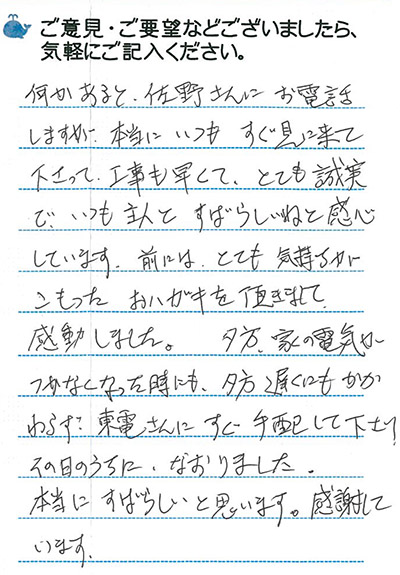 ご意見・ご要望などございましたら、
気軽にご記入ください。
何かあると、佐野さんに お電話
しますが、本当に いつも すぐ見に来て
下さって、工事も早くて、とても 誠実
で、いつも 主人と すばらしいねと 感心
しています。前には、とても 気持ちが
こもった おハガキを 頂きまして、
感動しました。 夕方、家の電気が
つかなくなった時にも、夕方遅くにもかか
わらず、東電さんに すぐ 手配して下さり
その日のうちに、なおりました。
本当に すばらしいと思います。感謝して
います。